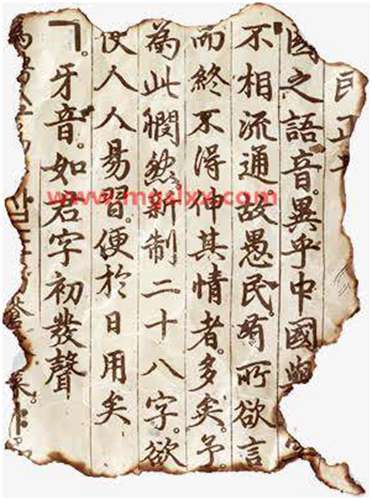 民正
國之語音。異乎中國與
不相流通故愚民。有所欲言
而終不得伸其情者。多矣。予
為此憫然。新制二十八字。欲
使人人易習。便於日用矣
ㄱ。牙音。如君字初發聲